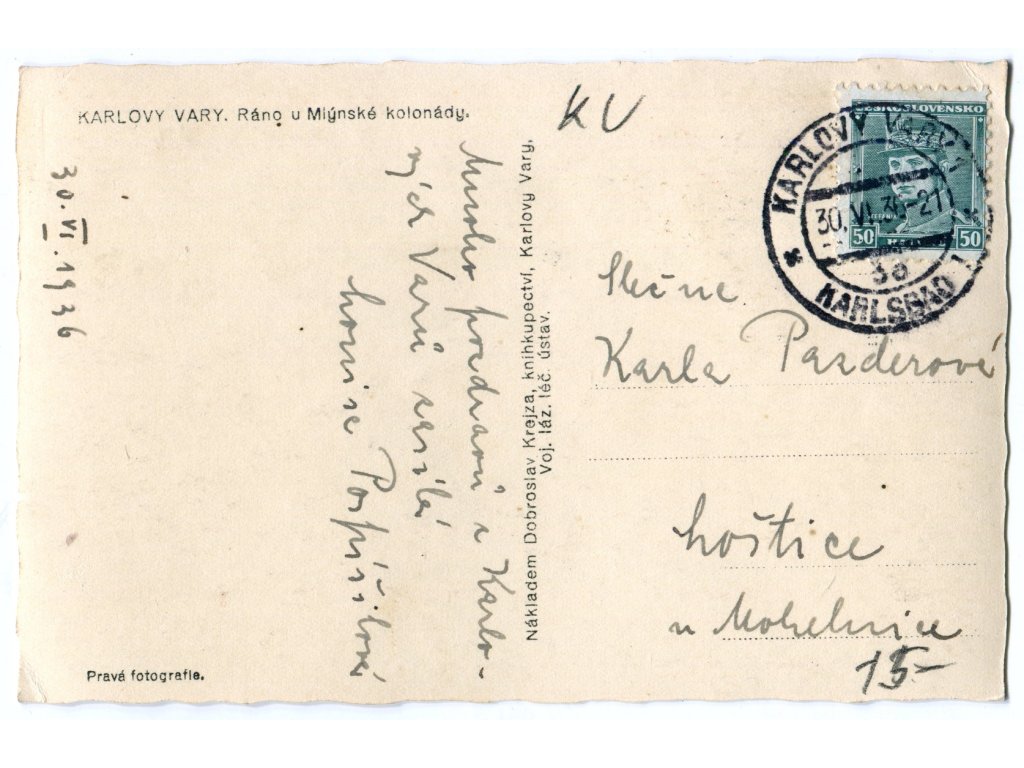 KARLOVY VARY. Ráno u Mlýnské kolonády.
30.VI.1936
Mnoho pozdravů z Karlo-
vých Varů zasílá
Louisa Pospíšilová
Pravá fotografie.
Nákladem Dobroslav Krejza, knihkupectví, Karlovy Vary.
Voj. láz. léč. ústav.
KV
ČESKOSLOVENSKO
50
50
KARLOVY VARY 1
30.VI.36-21
3a
* KARLSBAD 1 *
Slečna
Karla Pazderová
Loštice
u Mohelnice
15-